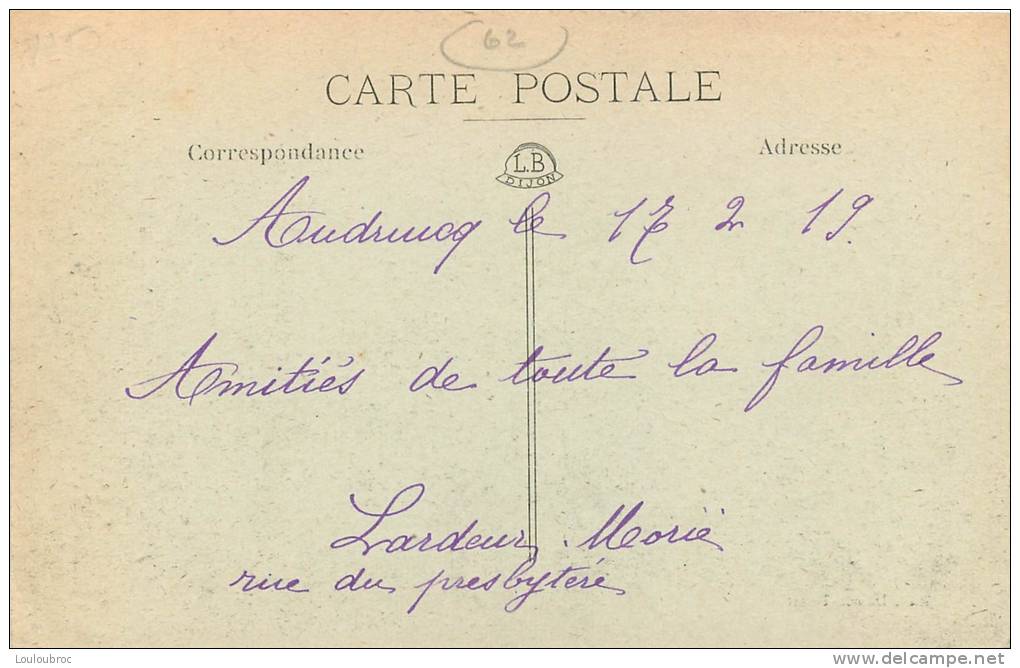 62
CARTE POSTALE
Correspondance
Adresse
L.B
DIJON
Audruicq le 17 2 19.
Amitiés de toute la famille
Lardeur. Morië
rue du presbytère
Louloubroc
www.delcampe.net